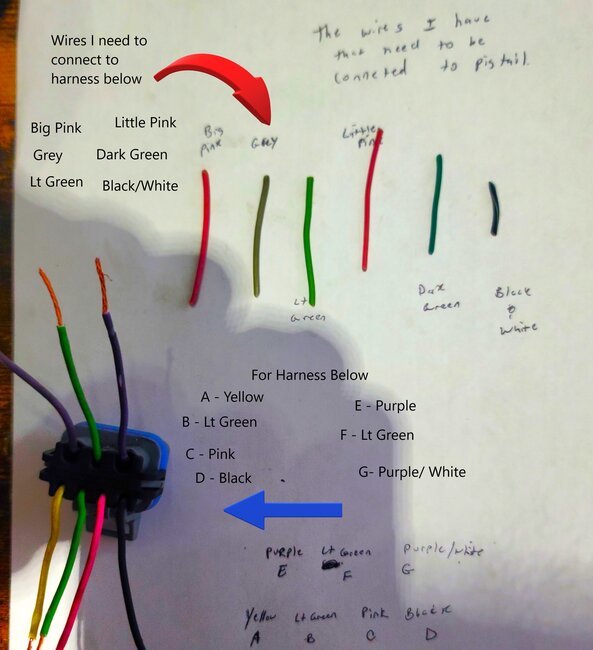 Wires I need to
connect to
harness below
the wires I have
that need to be
connected to pigtail.
Big Pink
Little Pink
Grey
Dark Green
Lt Green
Black/White
Big
Pink
Grey
Little
Pink
Lt
Green
Dark
Green
Black
&
White
For Harness Below
A - Yellow
B - Lt Green
C - Pink
D - Black
E - Purple
F - Lt Green
G- Purple/ White
Purple Lt Green Purple/white
E F G
Yellow Lt Green Pink Black
A B C D